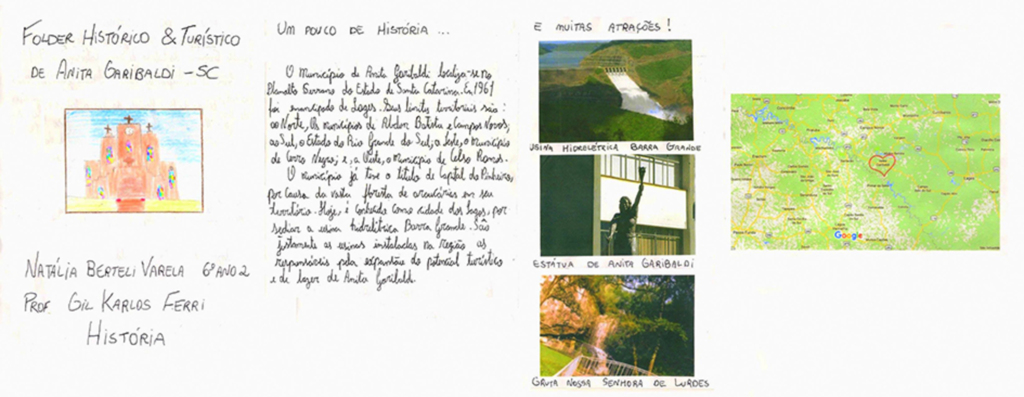 FOLDER HISTÓRICO & TURÍSTICO
DE ANITA GARIBALDI - SC
NATÁLIA BERTELI VARELA 6º ANO 2
PROF. GIL KARLOS FERRI
HISTÓRIA
UM POUCO DE HISTÓRIA ...
O Município de Anita Garibaldi localiza-se no
Planalto Serrano do Estado de Santa Catarina. Em 1961
foi emancipado de Lages. Seus limites territoriais são:
ao Norte, Os municípios de Abdon Batista e Campos Novos;
ao Sul, o Estado do Rio Grande do Sul; a Leste, o Município
de Cerro Negro; e, a Oeste, o Município de Celso Ramos.
O município já teve o título de Capital do Pinheiro,
por causa da vasta floresta de araucárias em seu
território. Hoje, é conhecida como cidade dos lagos, por
sediar a usina hidrelétrica Barra Grande. São
justamente as usinas instaladas na região as
responsáveis pela expansão do potencial turístico
e de lazer de Anita Garibaldi.
E MUITAS ATRAÇÕES!
USINA HIDRELÉTRICA BARRA GRANDE
ESTÁTUA DE ANITA GARIBALDI
GRUTA NOSSA SENHORA DE LURDES
Google